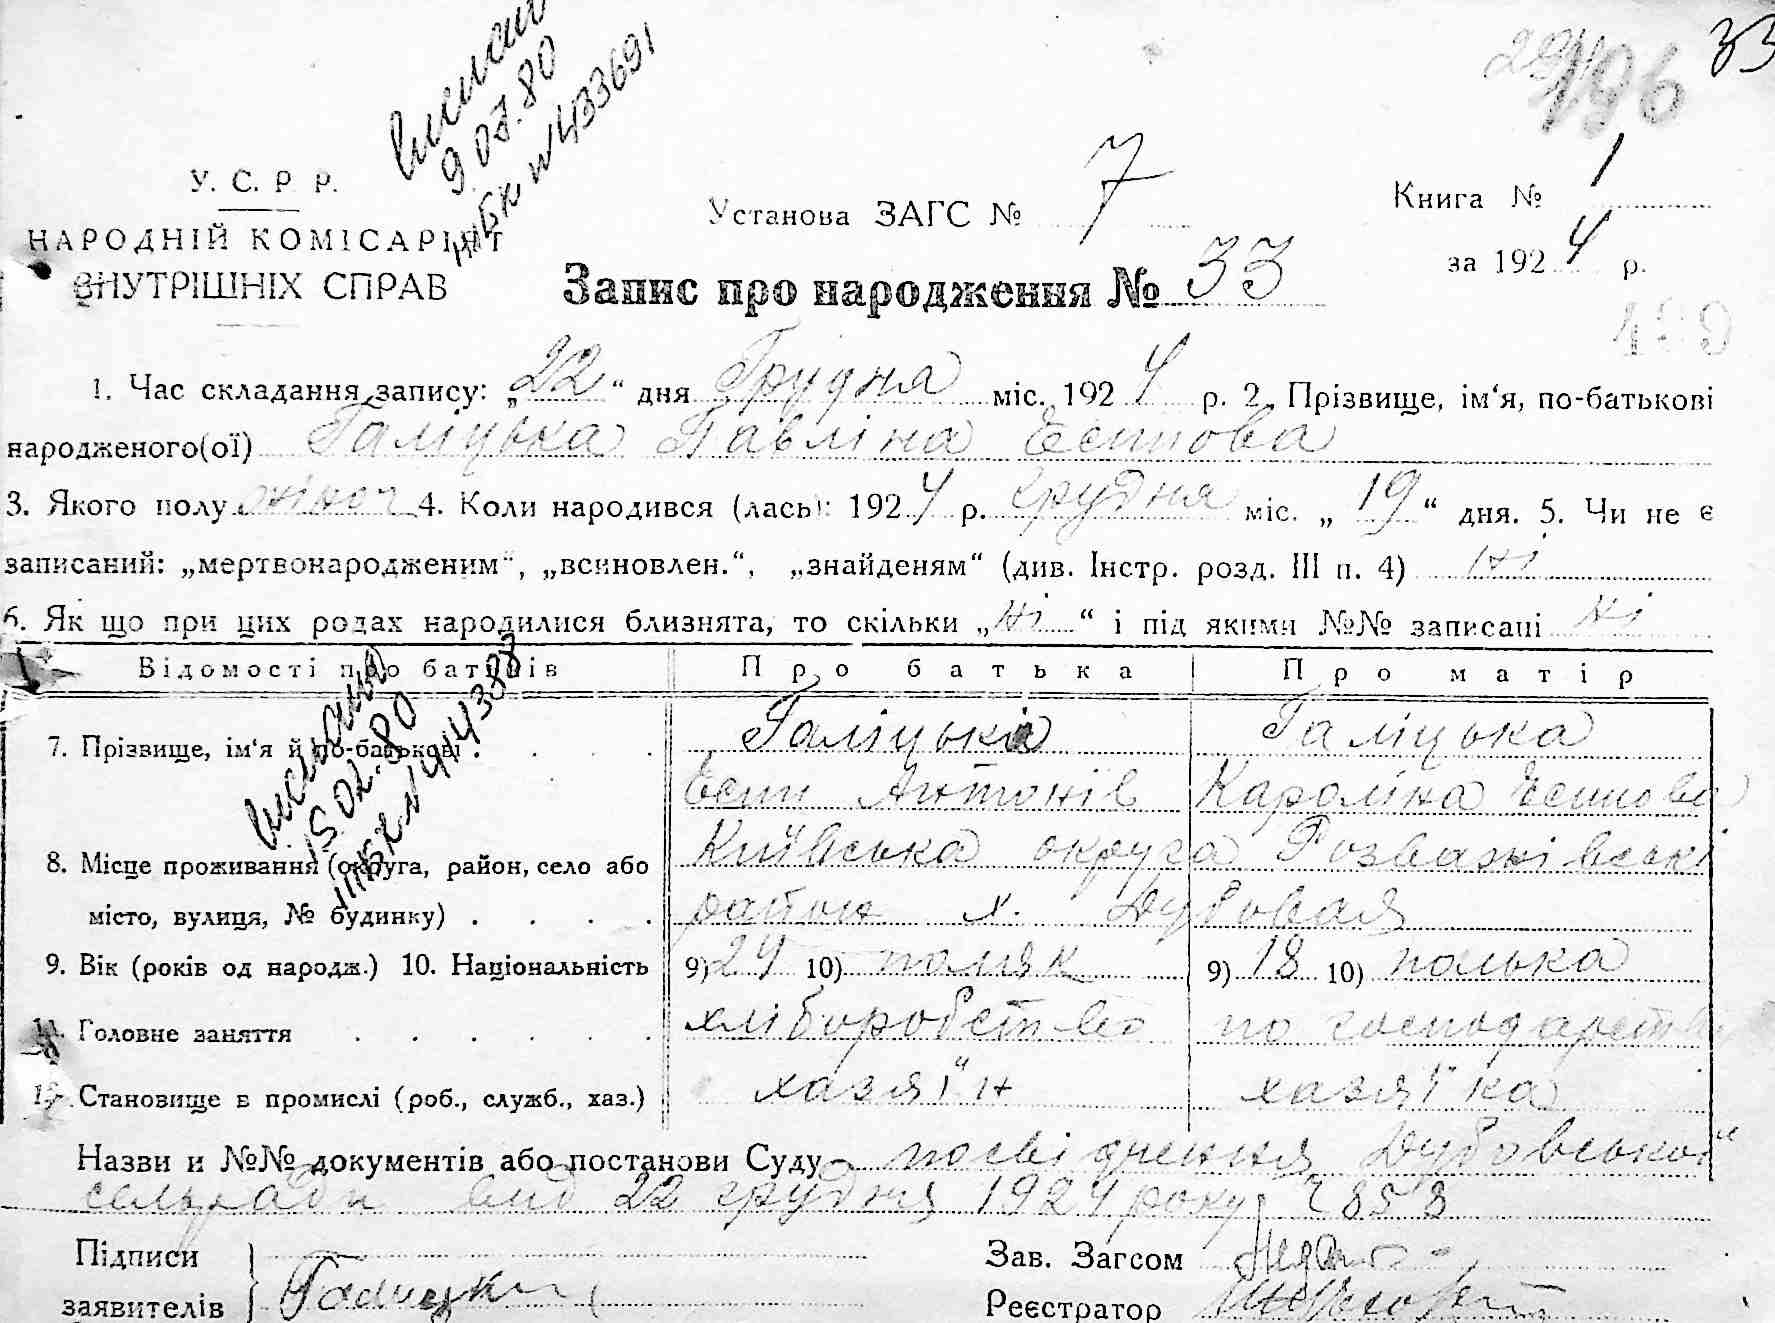 33
196
виписан
9.07.80
ІІІ БК № 433691
У. С. Р. Р.
НАРОДНІЙ КОМІСАРІЯТ
ВНУТРІШНІХ СПРАВ
Установа ЗАГС № 7
Книга № 1
за 1924 р.
Запис про народження № 33
499
1. Час складання запису: „22“ дня Грудня міс. 1924 р. 2. Прізвище, ім‘я, по-батькові
народженого(ої) Галіцька Павліна Есипова
3. Якого полу жіноч 4. Коли народився (лась): 1924 р. Грудня міс. „19“ дня. 5. Чи не є
записаний: „мертвонародженим“, „всиновлен.“, „знайденям“ (див. Інстр. розд. III п. 4) ні
6. Як що при цих родах народилися близнята, то скільки „ні“ і під якими №№ записані ні
Відомості про батьків Про батька Про матір
виписаны
15.02.80
7. Прізвище, ім‘я й по-батькові . . . Галіцькі Галіцька
Есип Антонів Кароліна Есипова
8. Місце проживання (округа, район, село або Київська округа Розважівські
місто, вулиця, № будинку) . . . . район х. Дубовая
9. Вік (років од народж.) 10. Національність 9) 24 10) поляк 9) 18 10) полька
11. Головне заняття . . . . . . хліборобство по господарству
12. Становище в промислі (роб., служб., хаз.) хазяїн хазяїка
Назви и №№ документів або постанови Суду посвідчення Дубовської
сельради від 22 грудня 1924 року 858
Підписи
заявителів Галицки
Зав. Загсом
Реєстратор